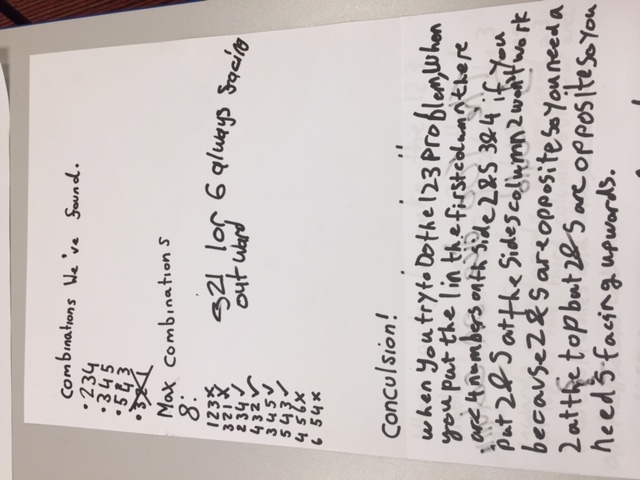 Combinations We've found.
• 234
• 345
• 543
Max Combinations
8:
123x
321x
234✓
432✓
345✓
543✓
456x
654x
321 1or 6 always facing
outward
Conculsion!
when you try to Do the 123 Problem, when
you put the 1 in the first column there
are 4 numbers on the side 2&5 3&4 if you
put 2&5 at the sides column 2 won't work
because 2&5 are opposite so you need a
2 at the top but 2&5 are opposite so you
need 5 facing upwards.